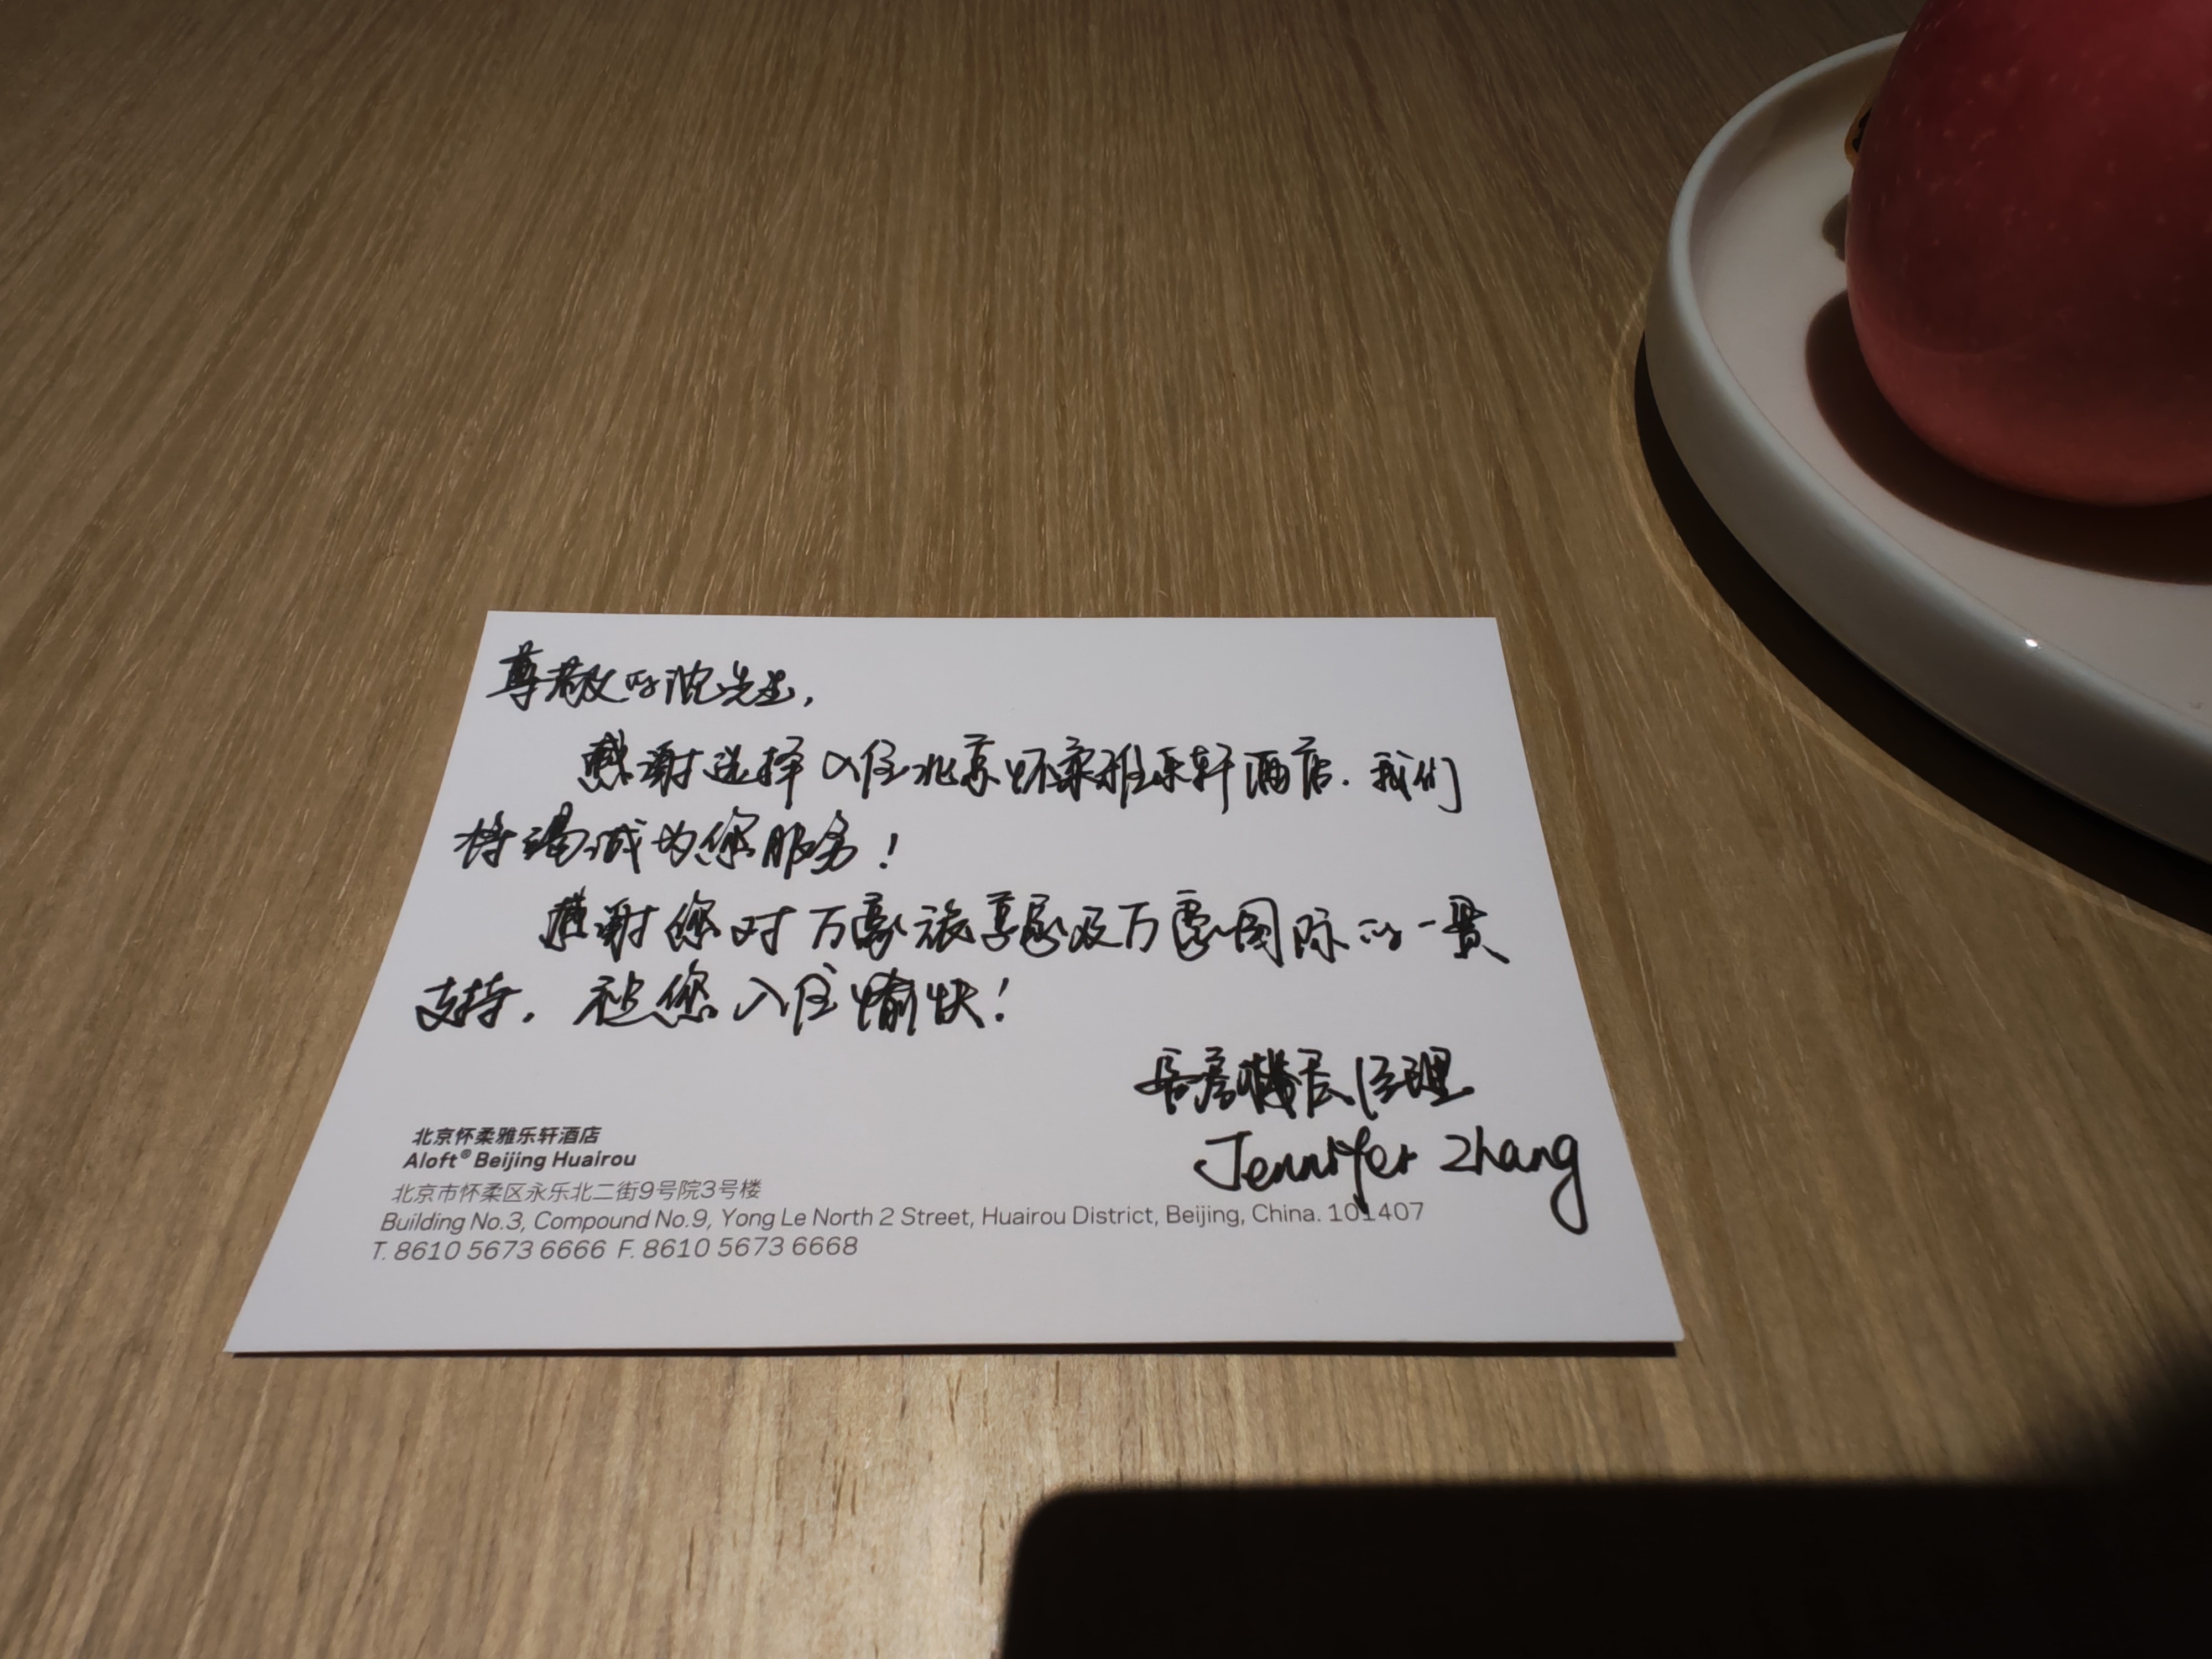 尊敬的沈先生,
感谢选择入住北京怀柔雅乐轩酒店.我们
将竭诚为您服务!
感谢您对万豪旅享家及万豪国际的一贯
支持.祝您入住愉快!
客房楼层经理
Jennifer Zhang
北京怀柔雅乐轩酒店
Aloft® Beijing Huairou
北京市怀柔区永乐北二街9号院3号楼
Building No.3, Compound No.9, Yong Le North 2 Street, Huairou District, Beijing, China. 101407
T. 8610 5673 6666 F. 8610 5673 6668